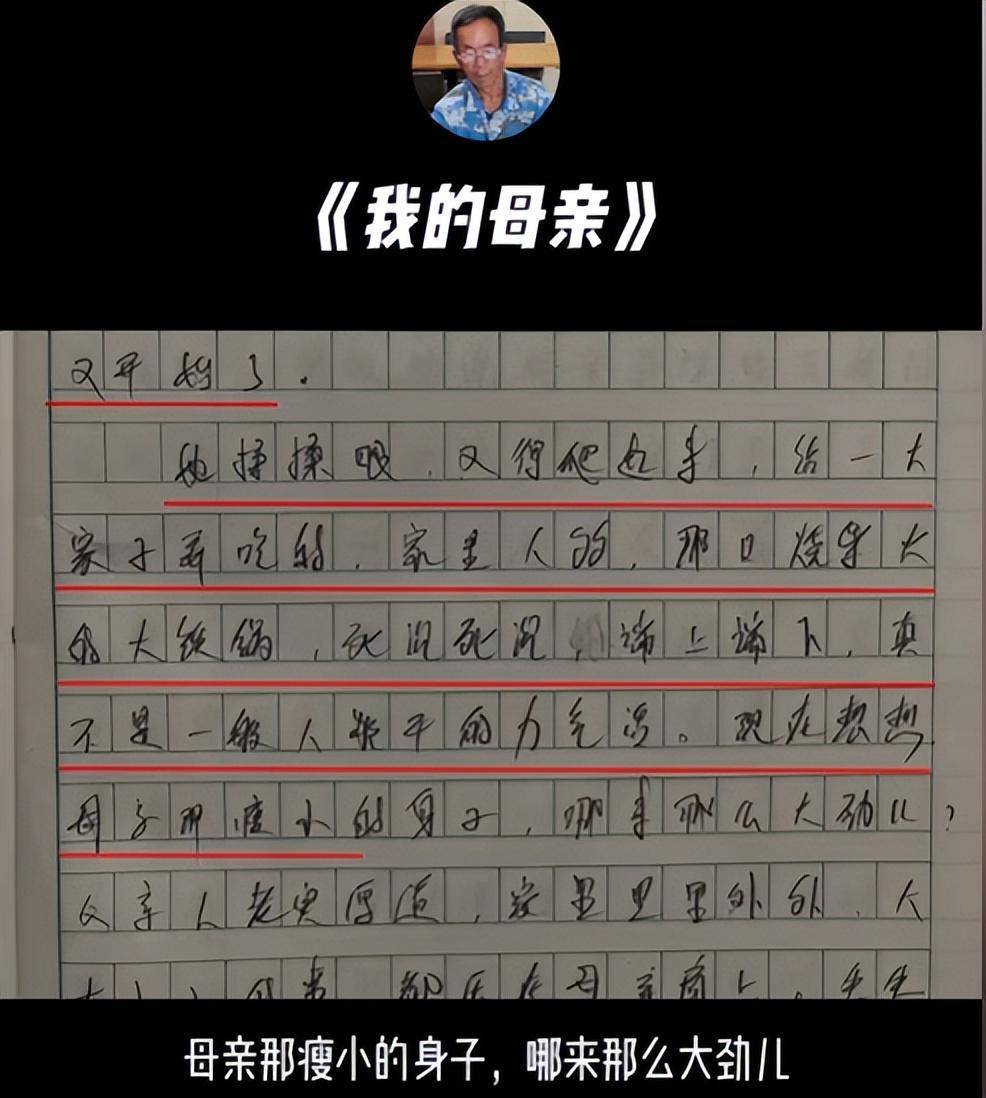 《我的母亲》
又开始了.
她揉揉眼，又得爬起来，给一大
家子弄吃的，家里人多，那口烧柴火
的大铁锅，死沉死沉，端上端下，真
不是一般人能干的力气活。现在想想
母亲那瘦小的身子，哪来那么大劲儿？
父亲人老实厚道，家里里里外外，大
都压在母亲肩上。
母亲那瘦小的身子，哪来那么大劲儿